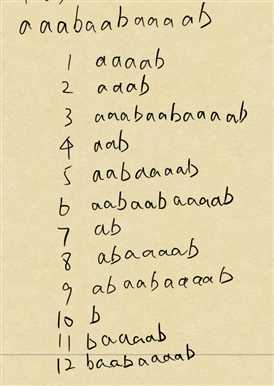 aaabaabaaaab
1 aaaab
2 aaab
3 aaabaabaaaab
4 aab
5 aabaaaab
6 aabaabaaaab
7 ab
8 abaaaab
9 abaabaaaab
10 b
11 baaaab
12 baabaaaab